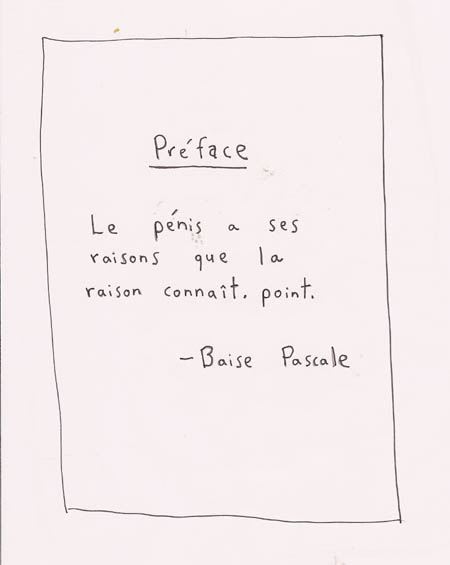 Préface
Le pénis a ses
raisons que la
raison connaît. point.
-Baise Pascale